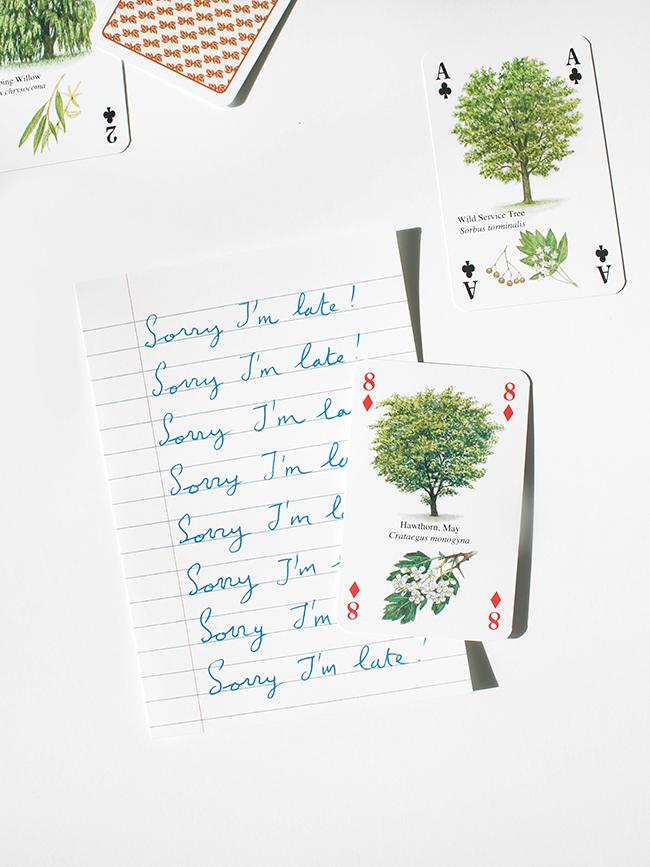 Willow
chrysocoma
2
A
A
Wild Service Tree
Sorbus torminalis
A
A
Sorry I'm late!
Sorry I'm late!
Sorry I'm
Sorry I'm
Sorry I'm
Sorry I'm
Sorry I'm
Sorry I'm late!
8
8
Hawthorn, May
Crataegus monogyna
8
8